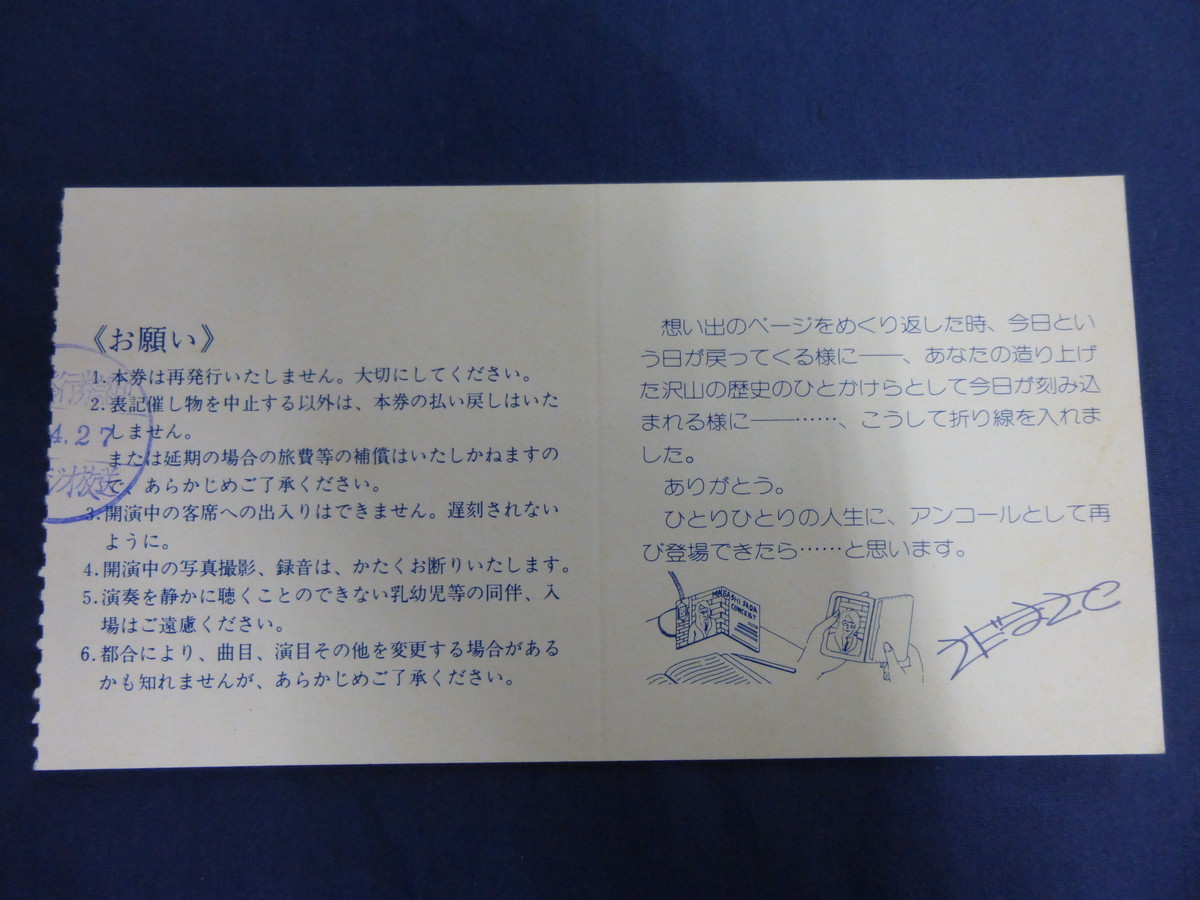 《お願い》
1.本券は再発行いたしません。大切にしてください。
2.表記催し物を中止する以外は、本券の払い戻しはいた
しません。
または延期の場合の旅費等の補償はいたしかねますの
で、あらかじめご了承ください。
3.開演中の客席への出入りはできません。遅刻されない
ように。
4.開演中の写真撮影、録音は、かたくお断りいたします。
5.演奏を静かに聴くことのできない乳幼児等の同伴、入
場はご遠慮ください。
6.都合により、曲目、演目その他を変更する場合がある
かも知れませんが、あらかじめご了承ください。
4.27
ジオ放送
想い出のページをめくり返した時、今日とい
う日が戻ってくる様に――、あなたの造り上げ
た沢山の歴史のひとかけらとして今日が刻み込
まれる様に――……、こうして折り線を入れま
した。
ありがとう。
ひとりひとりの人生に、アンコールとして再
び登場できたら……と思います。
MASASHI SADA
CONCERT
さだまさし